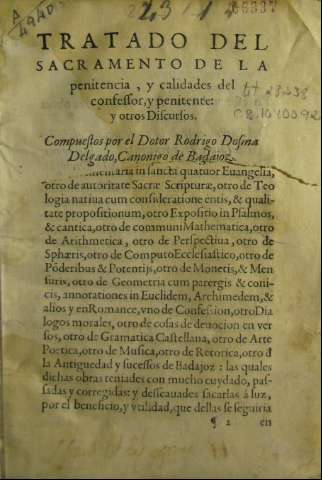 A
4940
231
66337
TRATADO DEL
SACRAMENTO DE LA
penitencia, y calidades del
confessor, y penitente:
y otros Discursos.
Compuestos por el Dotor Rodrigo Dosma
Delgado, Canonigo de Badajoz.
in sancta quatuor Euangelia,
otro de autoritate Sacræ Scripturæ, otro de Teo
logia natiua cum consideratione entis, & quali-
tate propositionum, otro Expositio in Psalmos,
& cantica, otro de communi Mathematica, otro
de Arithmetica, otro de Perspectiua, otro de
Sphæris, otro de Computo Ecclesiastico, otro de
Põderibus & Potentijs, otro de Monetis, & Men
suris, otro de Geometria cum parergis & coni-
cis, annotationes in Euclidem, Archimedem, &
alios y en Romance, vno de Confession, otro Dia
logos morales, otro de cosas de deuocion en ver
sos, otro de Gramatica Castellana, otro de Arte
Poetica, otro de Musica, otro de Retorica, otro d̃
la Antiguedad y sucessos de Badajoz: las quales
dichas obras teniades con mucho cuydado, pas-
sadas y corregidas: y desseauades sacarlas à luz,
por el beneficio, y vtilidad, que dellas se seguiria
¶ 2 en